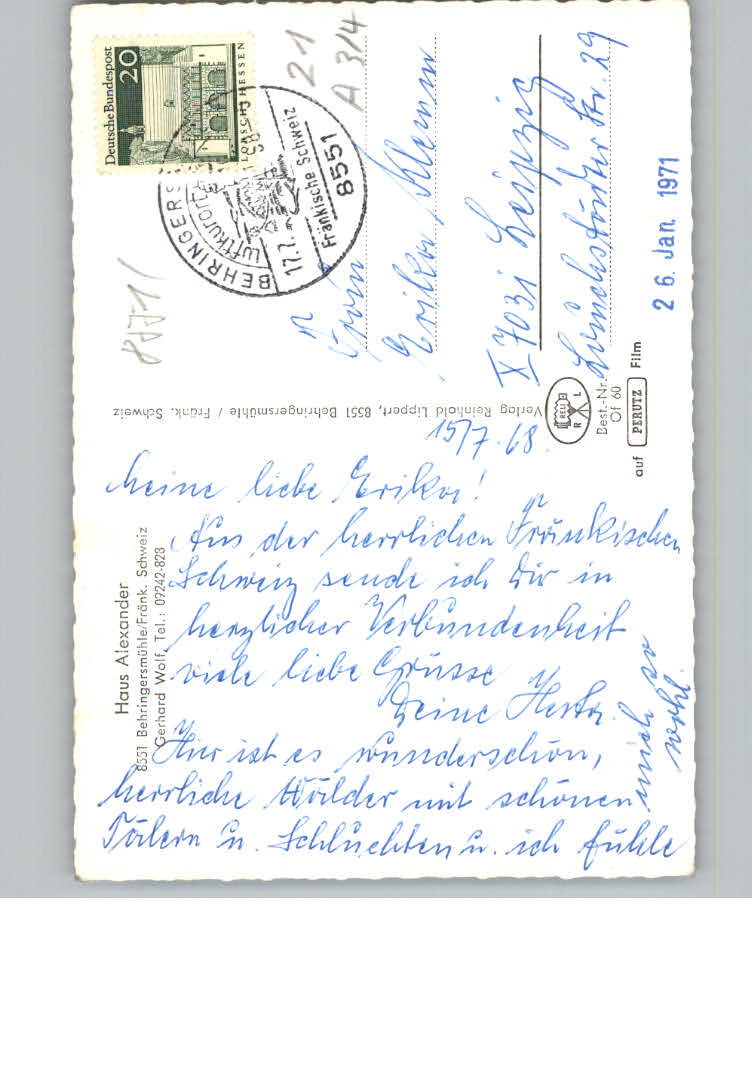 Haus Alexander
8551 Behringersmühle/Fränk. Schweiz
Gerhard Wolf, Tel.: 09242-828
15/7.68.
Meine liebe Erika!
Aus der herrlichen Fränkischen
Schweiz sende ich Dir in
herzlicher Verbundenheit
viele liebe Grüsse
Deine Herta.
Hier ist es wunderschön,
herrliche Wälder mit schönen
Tälern u. Schluchten u. ich fühle
mich so
wohl.
Verlag Reinhold Lippert, 8351 Behringersmühle / Fränk. Schweiz
Deutsche Bundespost
20
LORSCH/HESSEN
BEHRINGERS
Luftkurort
17.7.
Fränkische Schweiz
8551
21
A 3/4
Erika Klemm
X 7031 Leipzig
Str. 29
26. Jan. 1971
RELI
R L
Best.-Nr.
Of 60
auf PERUTZ Film